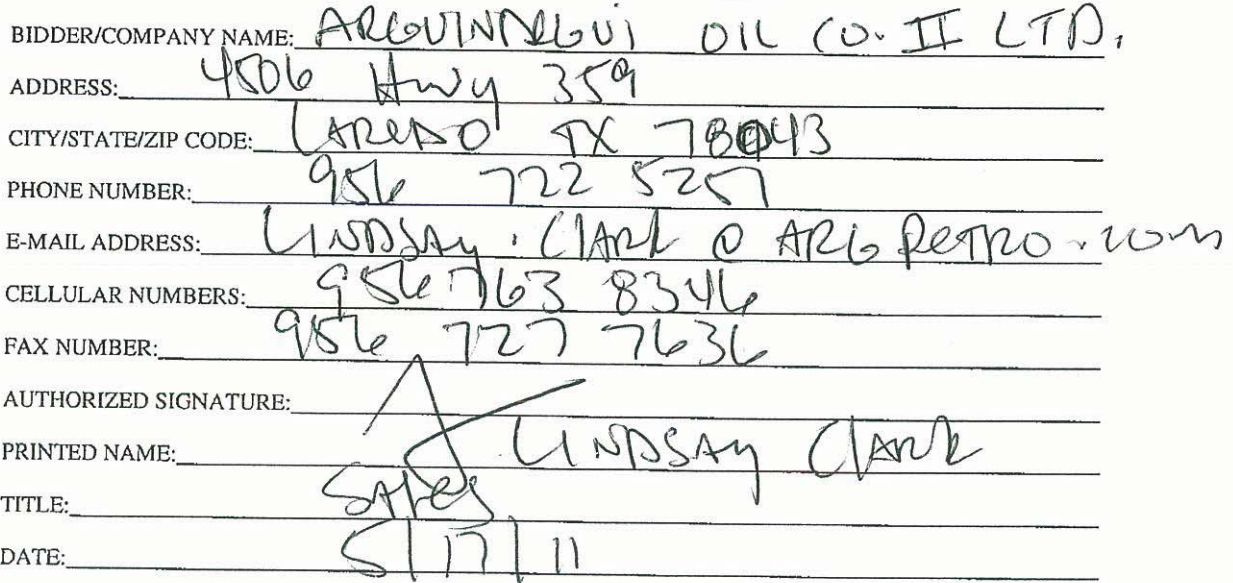 BIDDER/COMPANY NAME: ARGUINDEGUI OIL CO. II LTD.
ADDRESS: 4506 Hwy 359
CITY/STATE/ZIP CODE: LAREDO TX 78043
PHONE NUMBER: 956 722 5251
E-MAIL ADDRESS: LINDSAY.CLARK @ ARGPETRO.com
CELLULAR NUMBERS: 956 763 8346
FAX NUMBER: 956 727 7636
AUTHORIZED SIGNATURE:
PRINTED NAME: LINDSAY CLARK
TITLE: SALES
DATE: 5/17/11